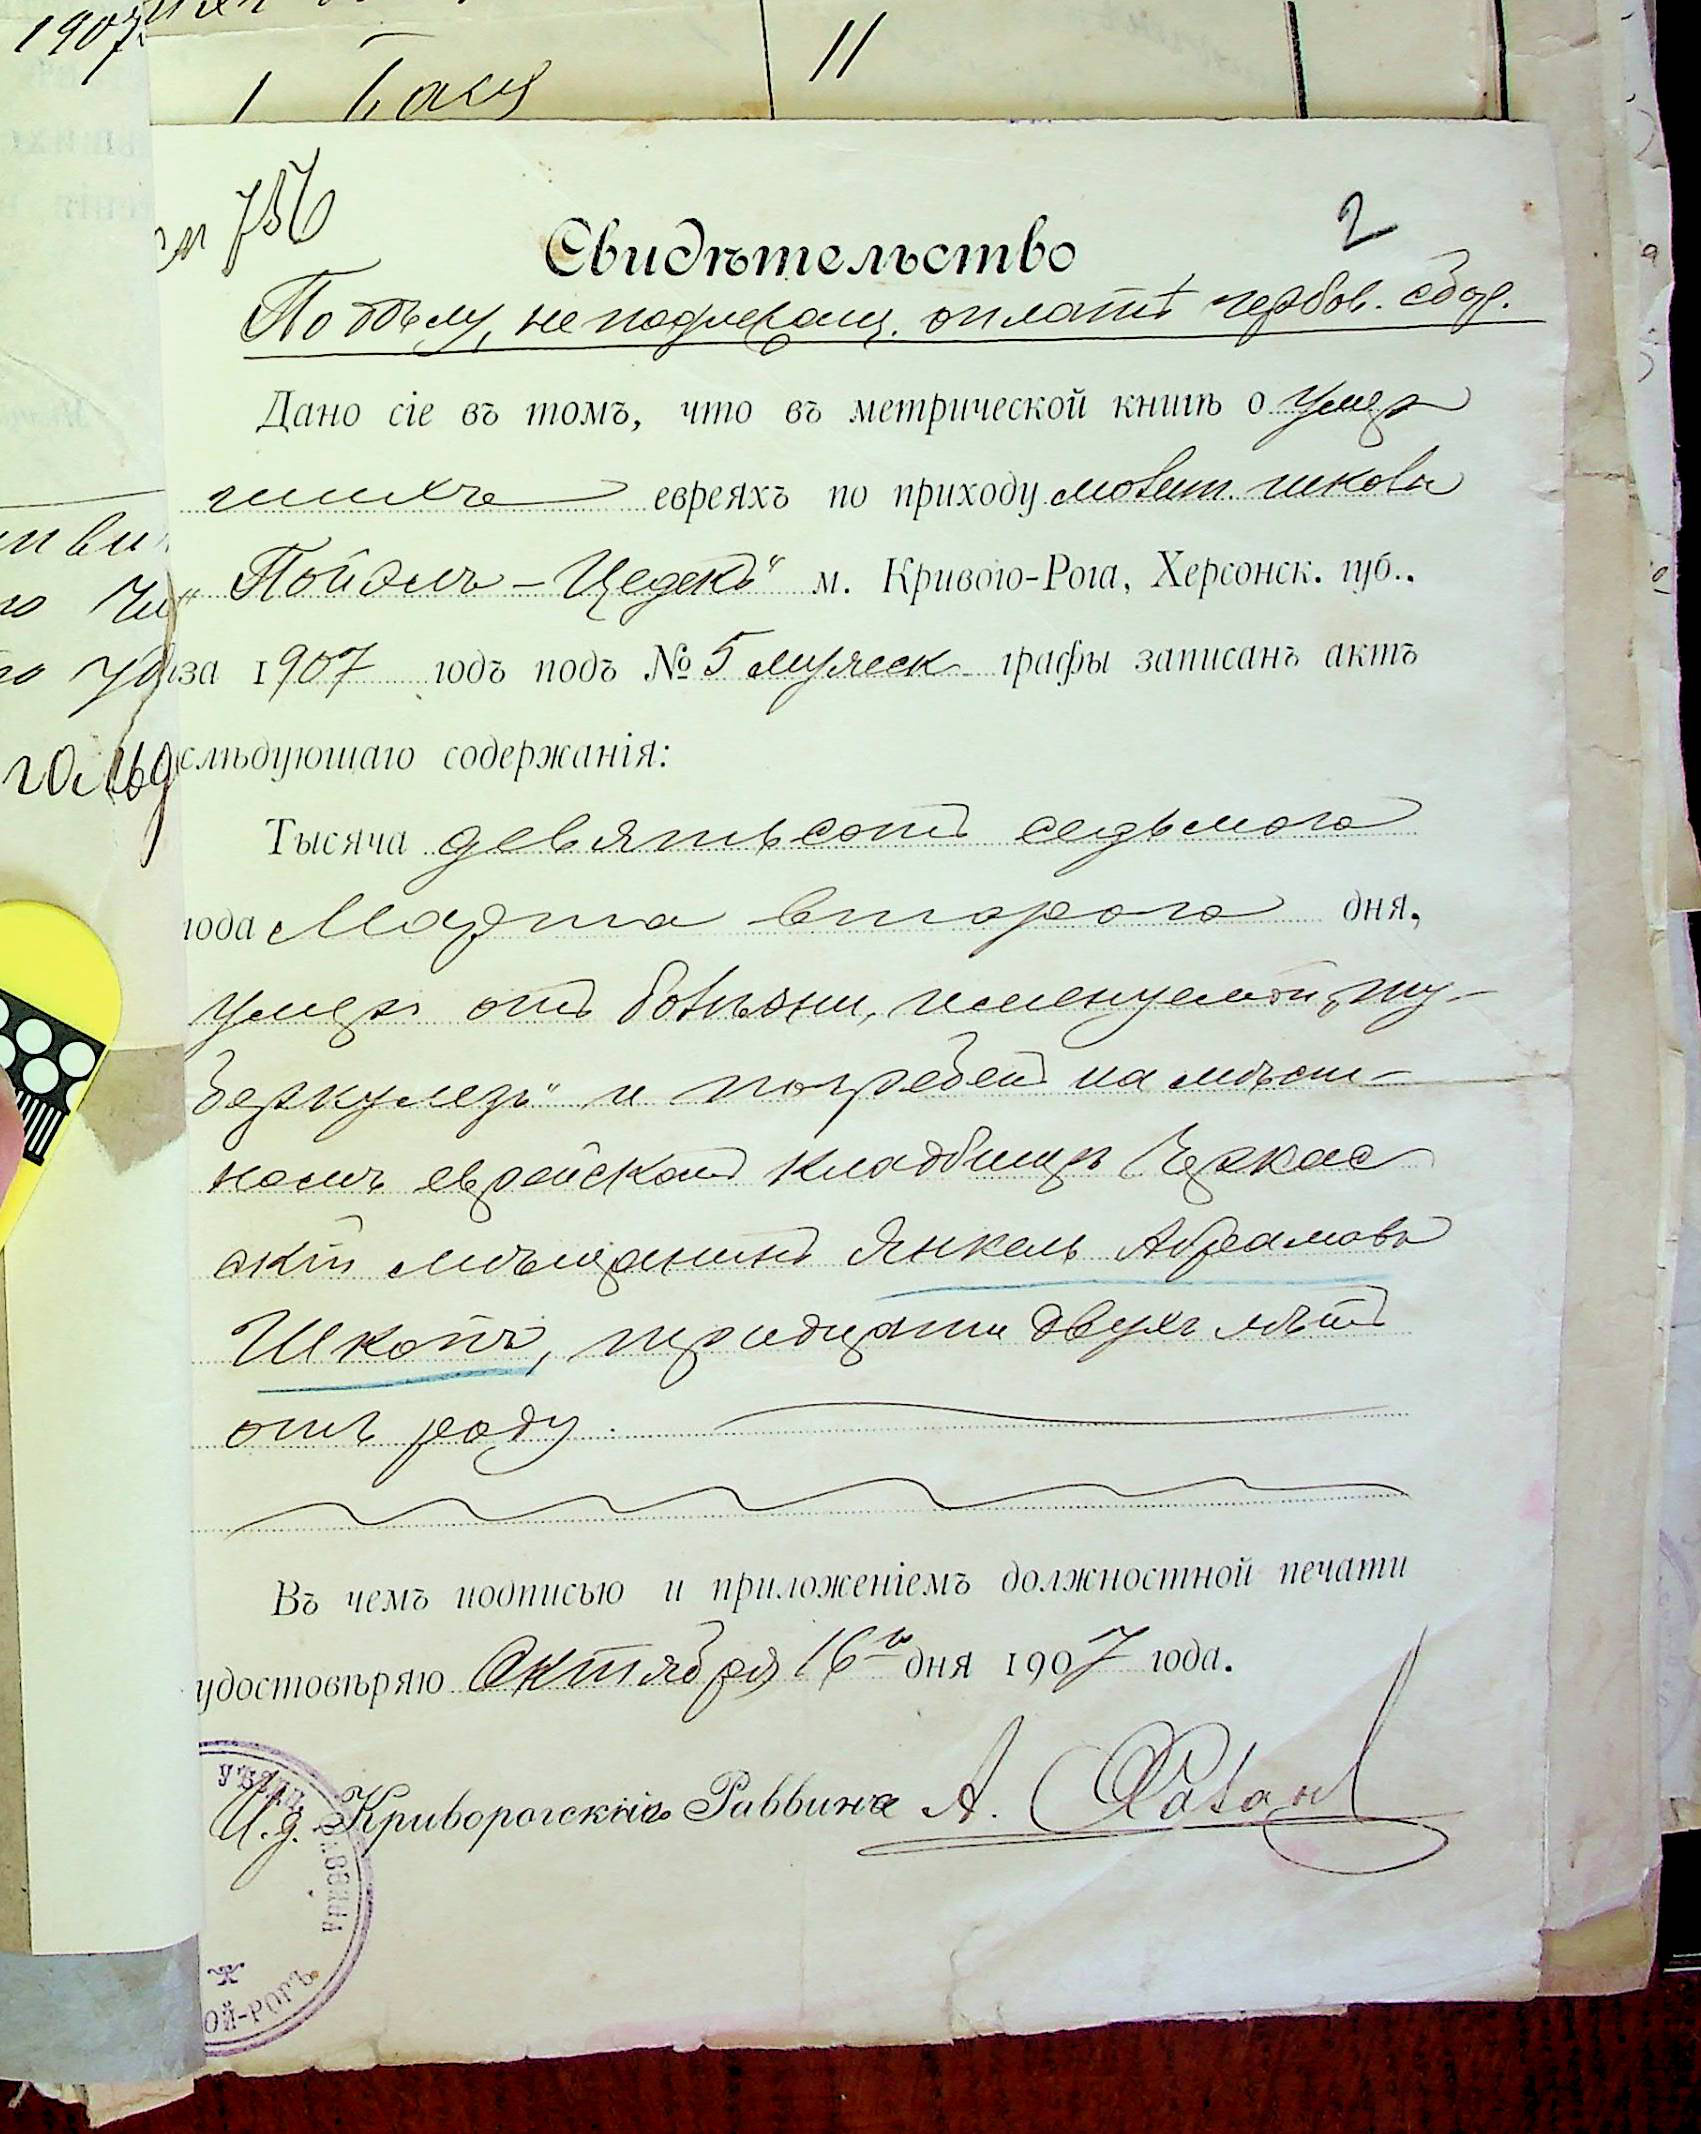 1907
1 11
№ 756
2
Свидѣтельство
По дѣлу, не подлежащ. оплатѣ гербов. сбор.
Дано сіе въ томъ, что въ метрической книгѣ о умер
шихъ евреяхъ по приходу молит. школы
"Пойэлъ-Цедекъ" м. Кривого-Рога, Херсонск. губ.,
за 1907 годъ подъ № 5 мужеск. графы записанъ актъ
слѣдующаго содержанія:
Тысяча девятьсотъ седьмого
года Марта второго дня,
умеръ отъ болѣзни, именуемой „ту-
беркулезъ" и погребенъ на мѣст-
номъ еврейскомъ кладбищѣ Черкас
скій мѣщанинъ Янкель Абрамовъ
Шкопъ, тридцати двухъ лѣтъ
отъ роду.
Въ чемъ подписью и приложеніемъ должностной печати
удостовѣряю Октября 16го дня 1907 года.
И.д. Криворогскаго Раввина А.
РАВВИНА
ОЙ-РОГЪ